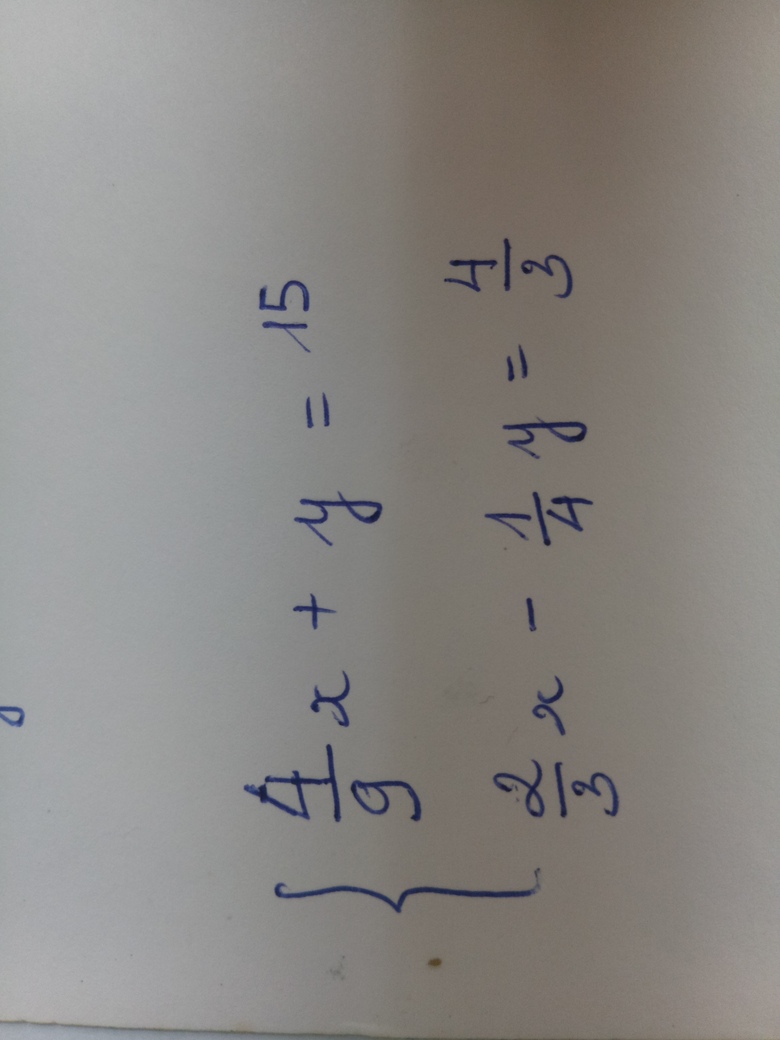 4/9 x + y = 15
2/3 x - 1/4 y = 4/3